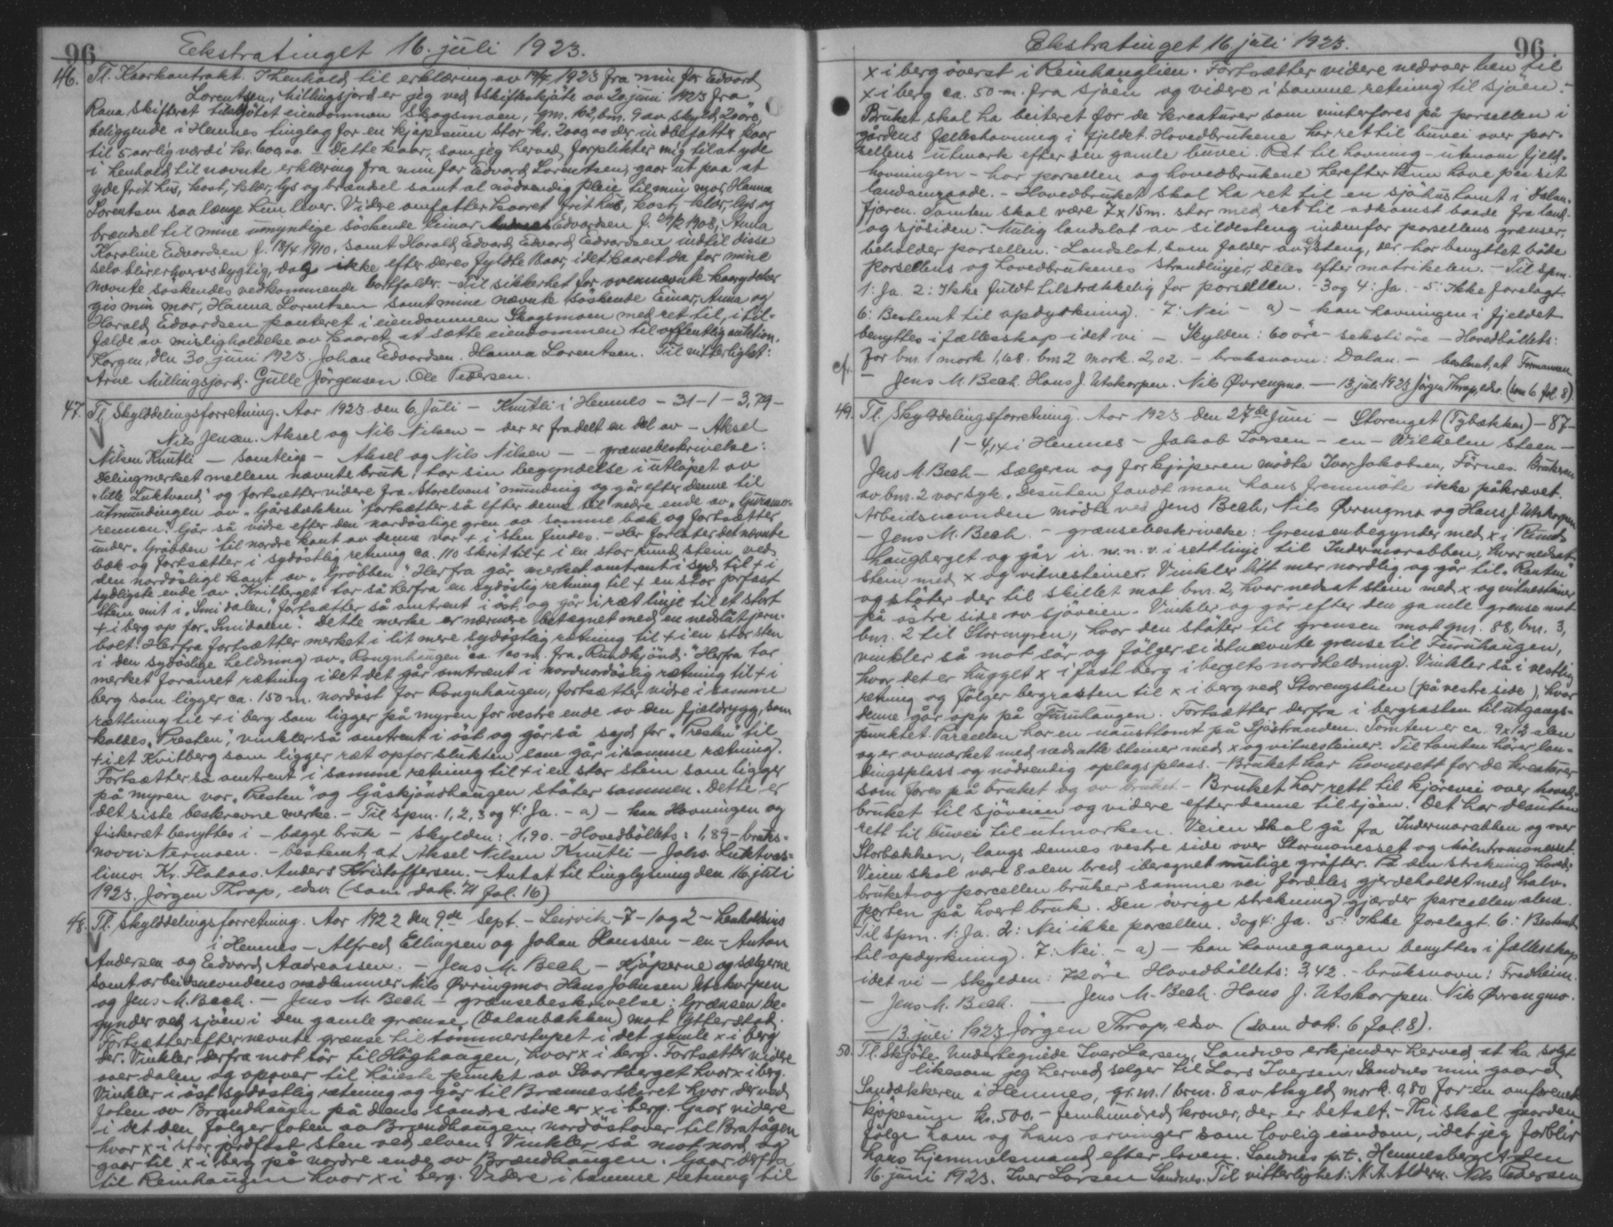 96
Ekstratinget 16. juli 1923.
46. Tl. Kaarkontrakt. I henhold til erklæring av 19/4 1923 fra min far Edvard
Lorentsen, Millingsjord er jeg ved skifteskjöte av 20 juni 1923 fra
Rana skifteret tilskjötet eiendommen Skogsmoen, gnr. 102, bnr. 9 av skyld 20 øre,
beliggende i Hemnes tinglag for en kjøpesum stor kr. 2000,00 der indbefatter kaar
til 5 aarlig værdi kr. 600,00. Dette kaar, som jeg herved forplikter mig til at yde
i henhold til nævnte erklæring fra min far Edvard Lorentsen, gaar ut paa at
yde frit hus, kost, klær, lys og brændsel samt al nödvendig pleie til min mor, Hanna
Lorentsen saa længe hun lever. Videre omfatter kaaret frit hus, kost, klær, lys og
brændsel til mine umyndige söskende Einar Edvardsen f. 1908, Anna
Karoline Edvardsen f. 18/4 1910. samt Harald Edvard Edvardsen indtil disse
selv blir erhvervsdygtig, dog ikke efter deres fyldte 18 aar, idet kaaret da for mine
nævnte söskendes vedkommende bortfalder. Til sikkerhet for ovennævnte kaarydelser
gis min mor, Hanna Lorentsen samt mine nævnte söskende Einar, Anna og
Harald Edvardsen panteret i eiendommen Skogsmoen med ret til, i til-
fælde av misligholdelse av kaaret, at sætte eiendommen til offentlig auktion.
Korgen, den 30 juni 1923. Johan Edvardsen. Hanna Lorentsen. Til vitterlighet:
Arne Millingsjord. Gulle Jörgensen. Ole Pedersen.
47. Tl. Skylddelingsforretning. Aar 1923 den 6. Juli - Knutli i Hemnes - 31 - 1 - 3,79 -
Nils Jensen. Aksel og Nils Nilsen - der er fradelt en del av - Aksel
Nilsen Knutli - samtlige - Aksel og Nils Nilsen - - grænsebeskrivelse:
Delingmerket mellem nævnte bruk, tar sin begyndelse i utlöpet av
"lille Luktvand" og fortsætter videre fra "Storelvens" munding og går efter denne til
utmundingen av "Gårsbækken" fortsætter så efter denne til nedre ende av
rennen". Går så vidre efter den nordöstlige gren av samme bæk og fortsætter
under "Gröbben" til nordre kant av denne hvor + i sten findes. - Her forlater det nævnte
bæk og fortsætter i sydöstlig retning ca. 110 skrit til + i en stor rund sten ved
den nordöstligt kant av "Gröbben". Herfra går merket omtrent i syd til + i
sydligste ende av "Kvitberget" tar så herfra en sydöstlig retning til + en stor jorfast
sten mit i "Smidalen", fortsætter så omtrent i öst og går i ret linje til et stort
+ i berg op for "Smidalen". Dette merke er nærmere betegnet med en nedslåt jern-
bolt. Herfra fortsætter merket i lit mere sydöstlig retning til + i en stor sten
i den sydöstlige heldning av "Rongnhaugen" ca. 100 m. fra "Rundtjönd". Herfra tar
merket forandret rætning i det det går omtrent i nordnordöstlig rætning til + i
berg som ligger ca. 150 m. nordöst for Rongnhaugen, fortsætter vidre i samme
rætning til + i berg som ligger på myren for vestre ende av den fjeldrygg, som
kaldes "Presten", vinkler så omtrent i öst og går så syd for "Presten" til
+ i et Kvitberg som ligger ret opfor slukten som går i samme rætning.
Fortsætter så omtrent i samme retning til + i en stor stein som ligger
på myren vor "Presten" og Gåskjöndhaugen støter sammen. Dette er
det siste beskrevne merke. - Til spm. 1, 2, 3 og 4: Ja. - a) - kan Havningen og
fiskeræt benyttes i - begge bruk - skylden: 1,90. - Hovedbölets: 1,89 - bruks-
navn: Nermoen. - bestemt, at Aksel Nilsen Knutli - Johs. Luktvas-
limo. Kr. Hataas. Anders Kristoffersen. - Antat til tinglysning den 16. juli
1923. Jörgen Thrap, edsv. (som dok. 71 fol. 16)
48. Tl. Skylddelingsforretning. Aar 1922 den 9de Sept. - Leirvik - 7 - 1 og 2 -
i Hemnes - Alfred Ellingsen og Johan Hanssen - en - Anton
Andersen og Edvard Andreassen. - Jens M. Bech - Kjöperne og sælgerne
samt arbeidsnevndens medlemmer Nils Övrengmo. Hans Johnsen Utskarpen
og Jens M. Bech. - Jens M. Bech - grænsebeskrivelse: Grænsen be-
gynder ved sjöen i den gamle grænse (Dalanbækken) mot Ytterstad.
Fortsætter efter nevnte grænse til tommerstupet i det gamle x i berg
der. Vinkler derfra mot sör til Höghaugen, hvor x i berg. Fortsætter videre
over dalen og opover til höieste punkt av Svartberget hvor x i berg.
Vinkler i öst sydöstlig rætning og går til Brænneskaret hvor der ved
foten av Brændhaugen på dens söndre side er x i berg. Gaar videre
i det den følger foten av Brændhaugen nordöstover til Bratågen
hvor x i stor jordfast sten ved elven. Vinkler så mot nord og
gaar til x i berg på nordre ende av Brændhaugen. Gaar derfra
til Reinhaugen hvor x i berg. Videre i samme retning til
96
Ekstratinget 16 juli 1923.
x i berg överst i Reinhauglien. Fortsætter videre nedover lien til
x i berg ca. 50 m. fra sjøen og videre i samme retning til sjöen. -
Bruket skal ha beiteret for de kreaturer som vinterfores på parsellen i
gårdens fælleshavning i fjeldet. Hovedbrukene har ret til buvei over par-
sellens utmark efter den gamle buvei. Ret til havning - utenom fjeld-
havningen - har parsellen og hovedbrukene herefter kun hver paa sit
landområade. - Hovedbruket skal ha ret til en sjøhustomt i Dalan-
fjæren. Tomten skal være 7 x 15 m. stor med ret til adkomst baade fra land-
og sjösiden. - Mulig landslot av sildesteng indenfor parsellens grænser,
beholder parsellen. - Landslot, som falder av steng, der har benyttet både
parsellens og hovedbrukenes strandlinjer, deles efter matrikelen. - Til spm.
1: Ja. 2: Ikke fuldt tilstrækkelig for parsellen. - 3 og 4: Ja. - 5: Ikke forelagt.
6: Bestemt til opdyrkning. - 7: Nei - a) - kan havningen i fjeldet
benyttes i fællesskap - idet vi - Skylden: 60 öre - seksti öre - Hovedbölets:
for bnr. 1 mark 1,68. bnr. 2 mark. 2,02. - bruksnavn: Dalan. - bestemt, at Formannen
cfr.
- Jens M. Bech. Hans J. Utskarpen. Nils Övrengmo. - 13. juli 1923 Jörgen Thrap, edsv. (som 6 fol. 8)
49. Tl. Skylddelingsforretning. Aar 1923 den 27de Juni - Storenget (Tybækken) - 87 -
1 - 4,14 i Hemnes - Jakob Iversen - en - Vilhelm Steen -
Jens M. Bech - Sælgeren og for kjöperen mödte Ivar Jakobsen, Förnes. Brukeren
av bnr. 2 var syk. Desuten fandt man hans fremmöte ikke påkrævet.
Arbeidsnevnden mödte ved Jens Bech, Nils Övrengmo og Hans J. Utskarpen
- Jens M. Bech. - grænsebeskrivelse: Grensen begynder med x i Rund-
haugberget og går i n. n. v. i rett linje til Indermorabben, hvor nedsat
stein med x og vitnesteiner. Vinkler litt mer nordlig og går til "Renten"
og støter der til skillet mot bnr. 2, hvor nedsat stein med x og vitnesteiner
på östre side av sjöveien. Vinkler og går efter den gamle grense mot
bnr. 2 til Stormyren, hvor den støter til grensen mot gnr. 88, bnr. 3,
vinkler så mot sör og følger sistnævnte grense til Furuhaugen,
hvor det er hugget x i fast berg i bergets nordheldning. Vinkler så i vestlig
retning og fölger bergrasten til x i berg ved Storengslien (på vestre side), hvor
denne går opp på Furuhaugen. Fortsætter derfra i bergrasten til utgangs-
punktet. Parcellen har en nausttomt på Sjöstranden. Tomten er ca. 9 x 13 alen
og er avmerket med nedsatte steiner med x og vitnesteiner. Til tomten hører lan-
dingsplass og nödvendig oplagsplass. - Bruket har havnerett for de kreaturer
som fores på bruket og av bruket - Bruket har rett til kjörevei over hoved-
bruket til sjöveien og videre efter denne til sjöen. Det har desuten
rett til buvei til utmarken. Veien skal gå fra Indermorabben og over
Storbækken, langs dennes vestre side over Stormonesset og
Veien skal være 8 alen bred iberegnet mulige gröfter. På den strekning hoved-
bruket og parcellen bruker samme vei fordeles gjerdeholdet med halv-
parten på hvert bruk. Den övrige strekning gjærder parcellen alene.
Til spm. 1: Ja. 2: Nei ikke parcellen. 3 og 4: Ja. 5: Ikke forelagt. 6: Bestemt
til opdyrkning. 7: Nei. - a) - kan havnegangen benyttes i fællesskap
idet vi - Skylden: 72 öre Hovedbölets: 3,42. - bruksnavn: Fredheim.
- Jens M. Bech. - Jens M. Bech. Hans J. Utskarpen. Nils Övrengmo.
- 13. juli 1923 Jörgen Thrap, edsv. (som dok. 6 fol. 8).
50. Tl. Skjöte. Undertegnede Iver Larsen, Sandnes erkjender herved at ha solgt
likesom jeg herved sælger til Lars Iversen, Sandnes min gaard
Sandækkeren i Hemnes, gr. nr. 1 br. nr. 8 av skyld mark 0,80 for en omforenet
kjöpesum kr. 500. - femhundred kroner, der er betalt. - Thi skal gaarden
følge ham og hans arvinger som lovlig eiendom, idet jeg forblir
hans hjemmelsmand efter loven. Sandnes p.t. Hemnesberget den
16. juni 1923. Iver Larsen Sandnes. Til vitterlighet: N. A. Alderm. Nils Pedersen